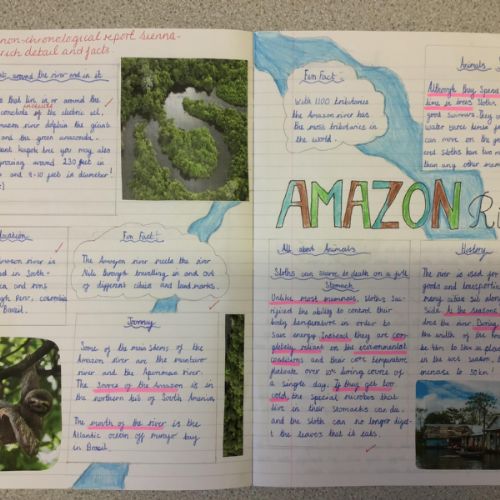 non-chronological report Sienna-
rich detail and facts.
around the river and in it
that live in or around the
included
of the electric eel,
Amazon river dolphin the giant
and the green anaconda.
kapok tree you may also
growing around 230 feet in
and 8-10 feet in diameter!
Location
Amazon river is
in South
and runs
Peru, Colombia
Brazil.
Fun Fact
The Amazon river meets the river
Nile through travelling in and out
of different cities and landmarks.
Journey
Some of the main stems of the
Amazon river are the mantaro
river and the Apurimac river.
The source of the Amazon is in
the northern tib of South America,
The mouth of the river is the
Atlantic ocean off
in Brazil.
Fun Fact
With 1100 tributaries
the Amazon river has
the most tributaries in
the world.
Animals
Although they spend
time in trees sloths
good swimmers they
water
can move on the
and sloths
than any other
AMAZON Ri
All about Animals
Sloths can starve to death on a full
Stomach
Unlike most mammals, sloths
the ability to control their
body temperature in order to
save energy. Instead they are com-
pletely reliant on the environmental
conditions and their core temperature
over 10°c during course of
a single day. If they get too
cold, the special microbes that
live in their stomachs can die
and the sloth can no longer digest
the leaves that it eats.
History
The river is used for
goods and transportation
many cities sit along
side. As the seasons
and the river During
the width of the
be 4km to 5km in places
in the wet season,
increase to 50km!